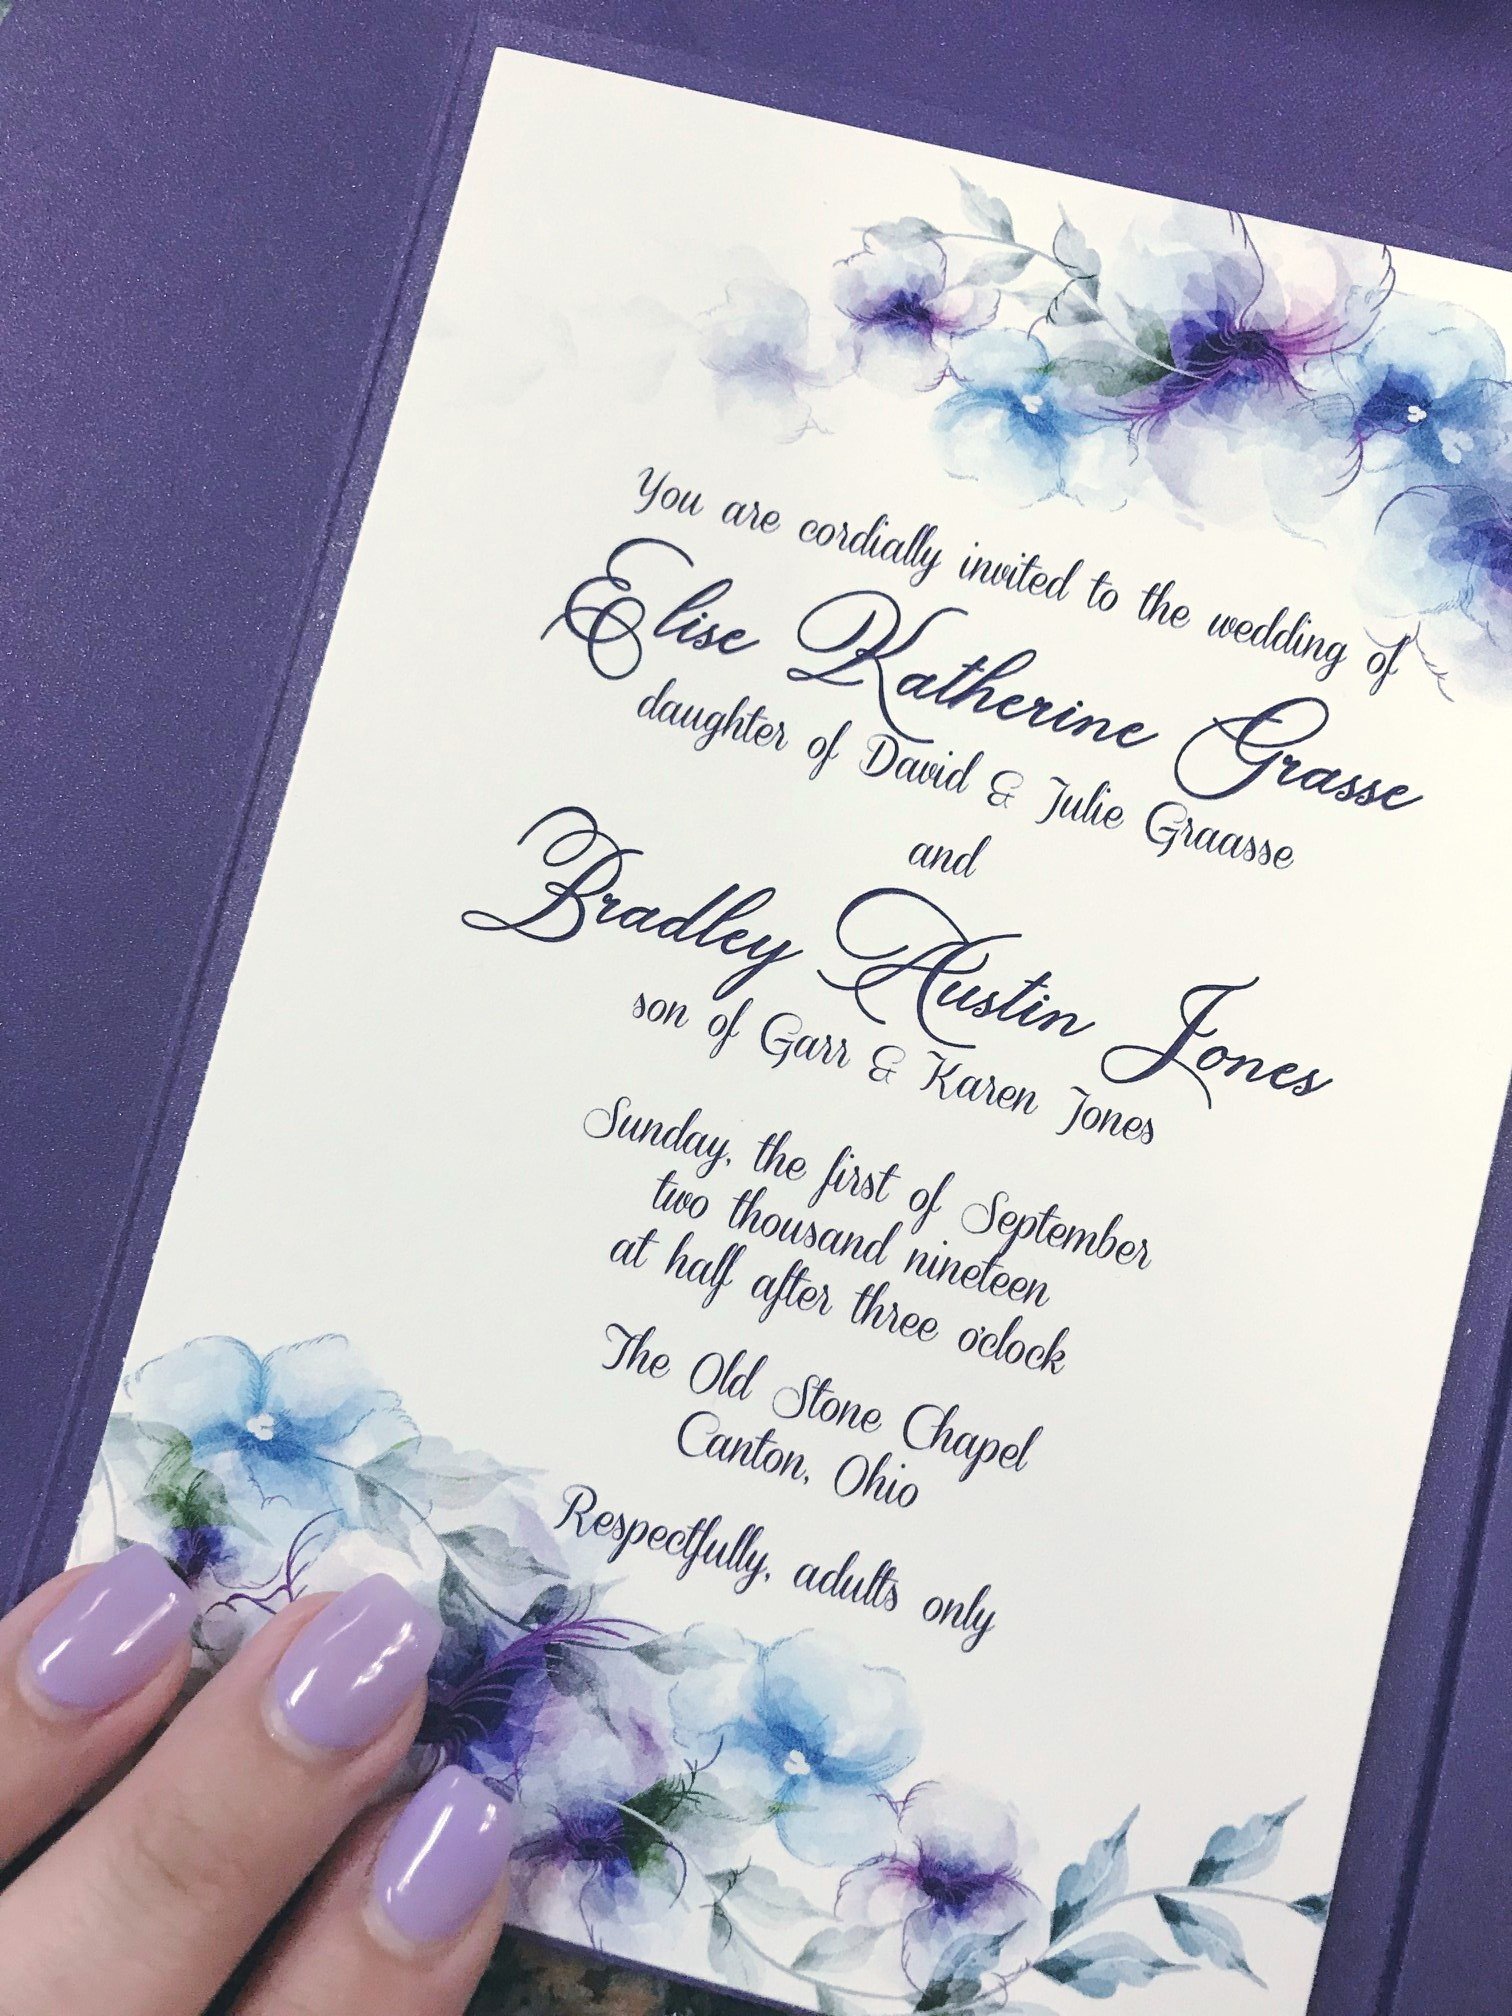 You are cordially invited to the wedding of
Elise Katherine Grasse
daughter of David & Julie Graasse
and
Bradley Austin Jones
son of Garr & Karen Jones
Sunday, the first of September
two thousand nineteen
at half after three o'clock
The Old Stone Chapel
Canton, Ohio
Respectfully, adults only